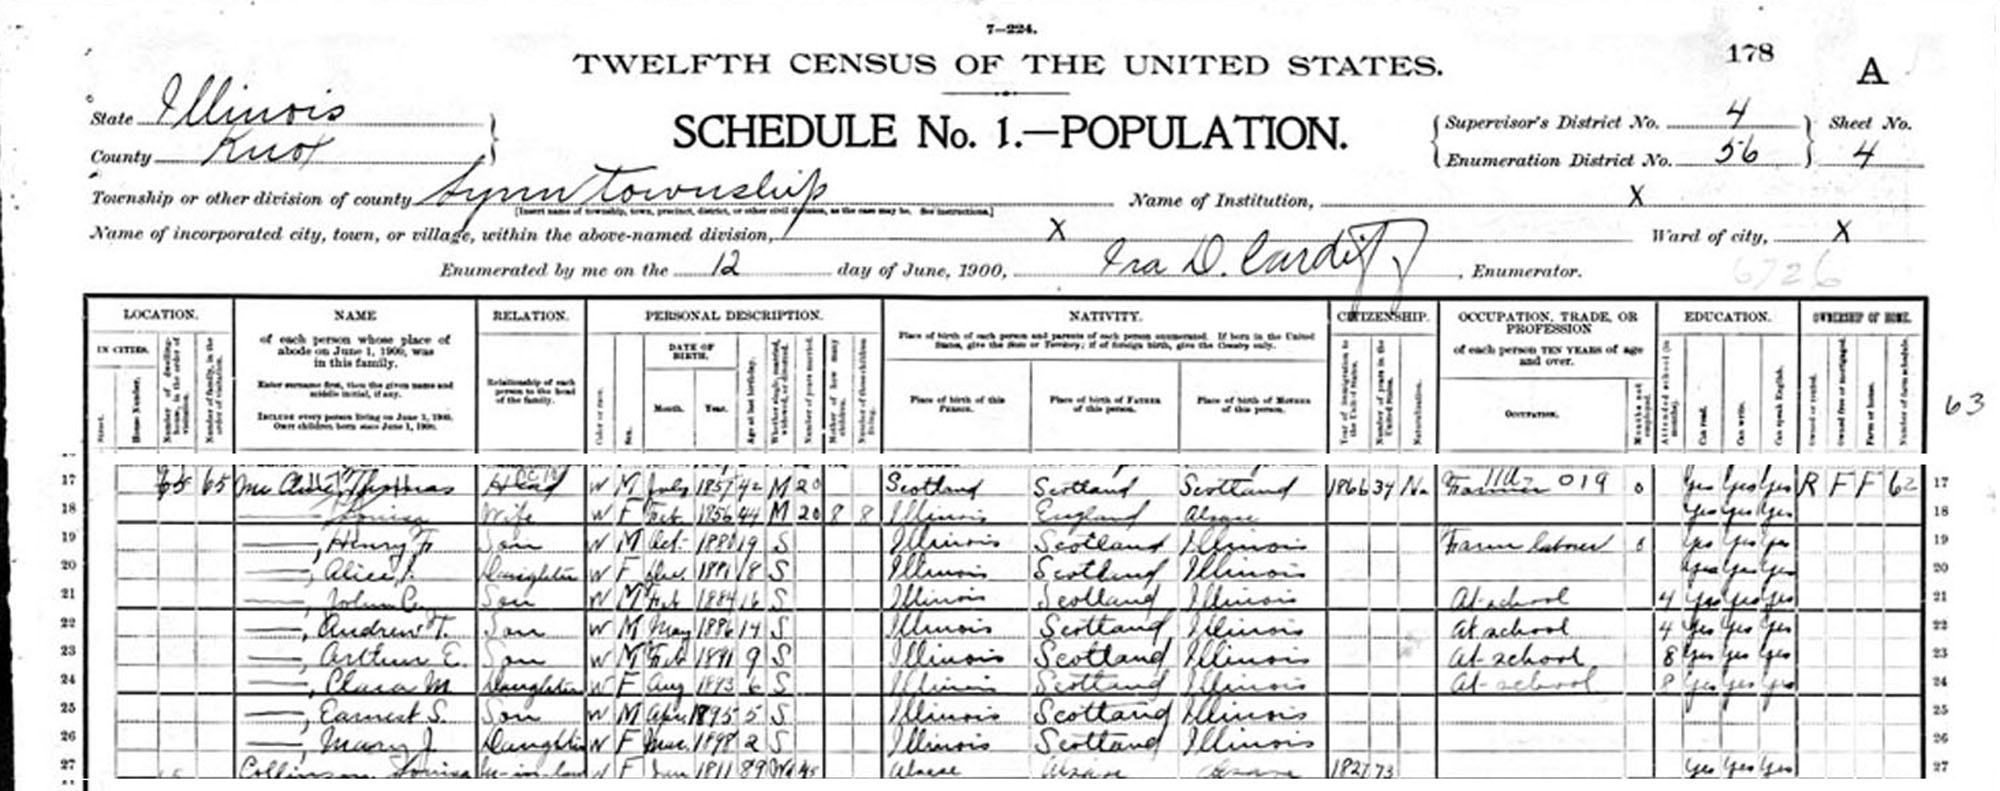 7—224.
TWELFTH CENSUS OF THE UNITED STATES.
178
A
State Illinois
County Knox
SCHEDULE No. 1.—POPULATION.
Supervisor's District No. 4
Enumeration District No. 56
Sheet No.
4
Township or other division of county Lynn township
[Insert name of township, town, precinct, district, or other civil division, as the case may be. See instructions.]
Name of Institution, X
Name of incorporated city, town, or village, within the above-named division, X
Ward of city, X
Enumerated by me on the 12 day of June, 1900, Ira D. Cardiff, Enumerator.
6726
LOCATION. NAME RELATION. PERSONAL DESCRIPTION. NATIVITY. CITIZENSHIP. OCCUPATION, TRADE, OR PROFESSION EDUCATION. OWNERSHIP OF HOME.
IN CITIES.
Street.
House Number.
Number of dwelling-house, in the order of visitation.
Number of family, in the order of visitation.
of each person whose place of abode on June 1, 1900, was in this family.
Enter surname first, then the given name and middle initial, if any.
INCLUDE every person living on June 1, 1900.
OMIT children born since June 1, 1900.
Relationship of each person to the head of the family.
Color or race.
Sex.
DATE OF BIRTH.
Month.
Year.
Age at last birthday.
Whether single, married, widowed, or divorced.
Number of years married.
Mother of how many children.
Number of these children living.
Place of birth of each person and parents of each person enumerated. If born in the United States, give the State or Territory; if of foreign birth, give the Country only.
Place of birth of this PERSON.
Place of birth of FATHER of this person.
Place of birth of MOTHER of this person.
Year of immigration to the United States.
Number of years in the United States.
Naturalization.
of each person TEN YEARS of age and over.
OCCUPATION.
Months not employed.
Attended school (in months).
Can read.
Can write.
Can speak English.
Owned or rented.
Owned free or mortgaged.
Farm or house.
Number of farm schedule.
63
17 65 65 Thomas Head W M July 1857 42 M 20 Scotland Scotland Scotland 1866 34 Na Farmer 019 0 Yes Yes Yes R F F 62 17
18 — Louisa Wife W F Feb 1856 44 M 20 8 8 Illinois England Alsace Yes Yes Yes 18
19 —, Henry F. Son W M Oct. 1880 19 S Illinois Scotland Illinois Farm laborer 0 Yes Yes Yes 19
20 —, Alice Daughter W F 1881 18 S Illinois Scotland Illinois Yes Yes Yes 20
21 —, John Son W M Feb 1884 16 S Illinois Scotland Illinois At school 4 Yes Yes Yes 21
22 —, Andrew T. Son W M May 1886 14 S Illinois Scotland Illinois At school 4 Yes Yes Yes 22
23 —, Arthur E. Son W M Feb 1891 9 S Illinois Scotland Illinois At school 8 Yes Yes Yes 23
24 —, Clara M Daughter W F Aug 1893 6 S Illinois Scotland Illinois At school 8 Yes Yes Yes 24
25 —, Earnest S. Son W M Apr. 1895 5 S Illinois Scotland Illinois 25
26 —, Mary J. Daughter W F Mar. 1898 2 S Illinois Scotland Illinois 26
27 Collinson Louisa M-in-law W F 1811 89 Wd 45 Alsace Alsace Alsace 1827 73 Yes Yes Yes 27